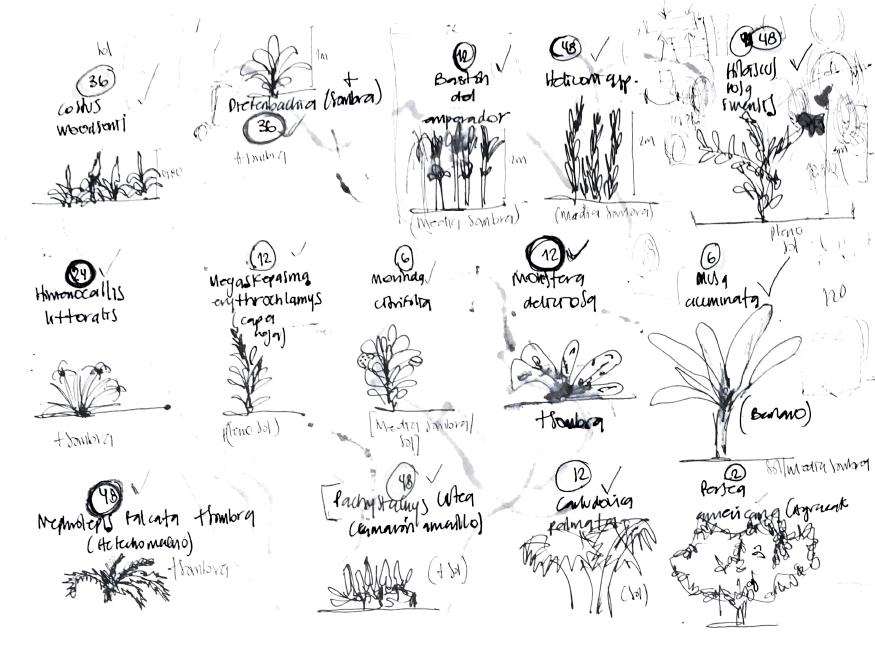 sol
36
costus
woodsoni
1m
Dieffenbachia
+
(sombra)
36
+sombra
12
Bastón
del
emperador
2m
(Media sombra)
48
Heliconia spp.
2m
(media sombra)
48
Hibiscus
rosa
sinensis
pleno
sol
24
Himenocallis
littoralis
+sombra
12
Megaskepasma
erythrochlamys
(capa
roja)
(pleno sol)
6
morinda
citrifolia
[Media sombra/
sol]
12
Monstera
deliciosa
+sombra
6
Musa
acuminata
(Banano)
sol/media sombra
120
48
Nephrolepis falcata +sombra
(Helecho macho)
+sombra
48
[Pachystachys lutea
(camarón amarillo)
(+sol)
12
Carludovica
palmata
(sol)
2
Persea
americana (Aguacate